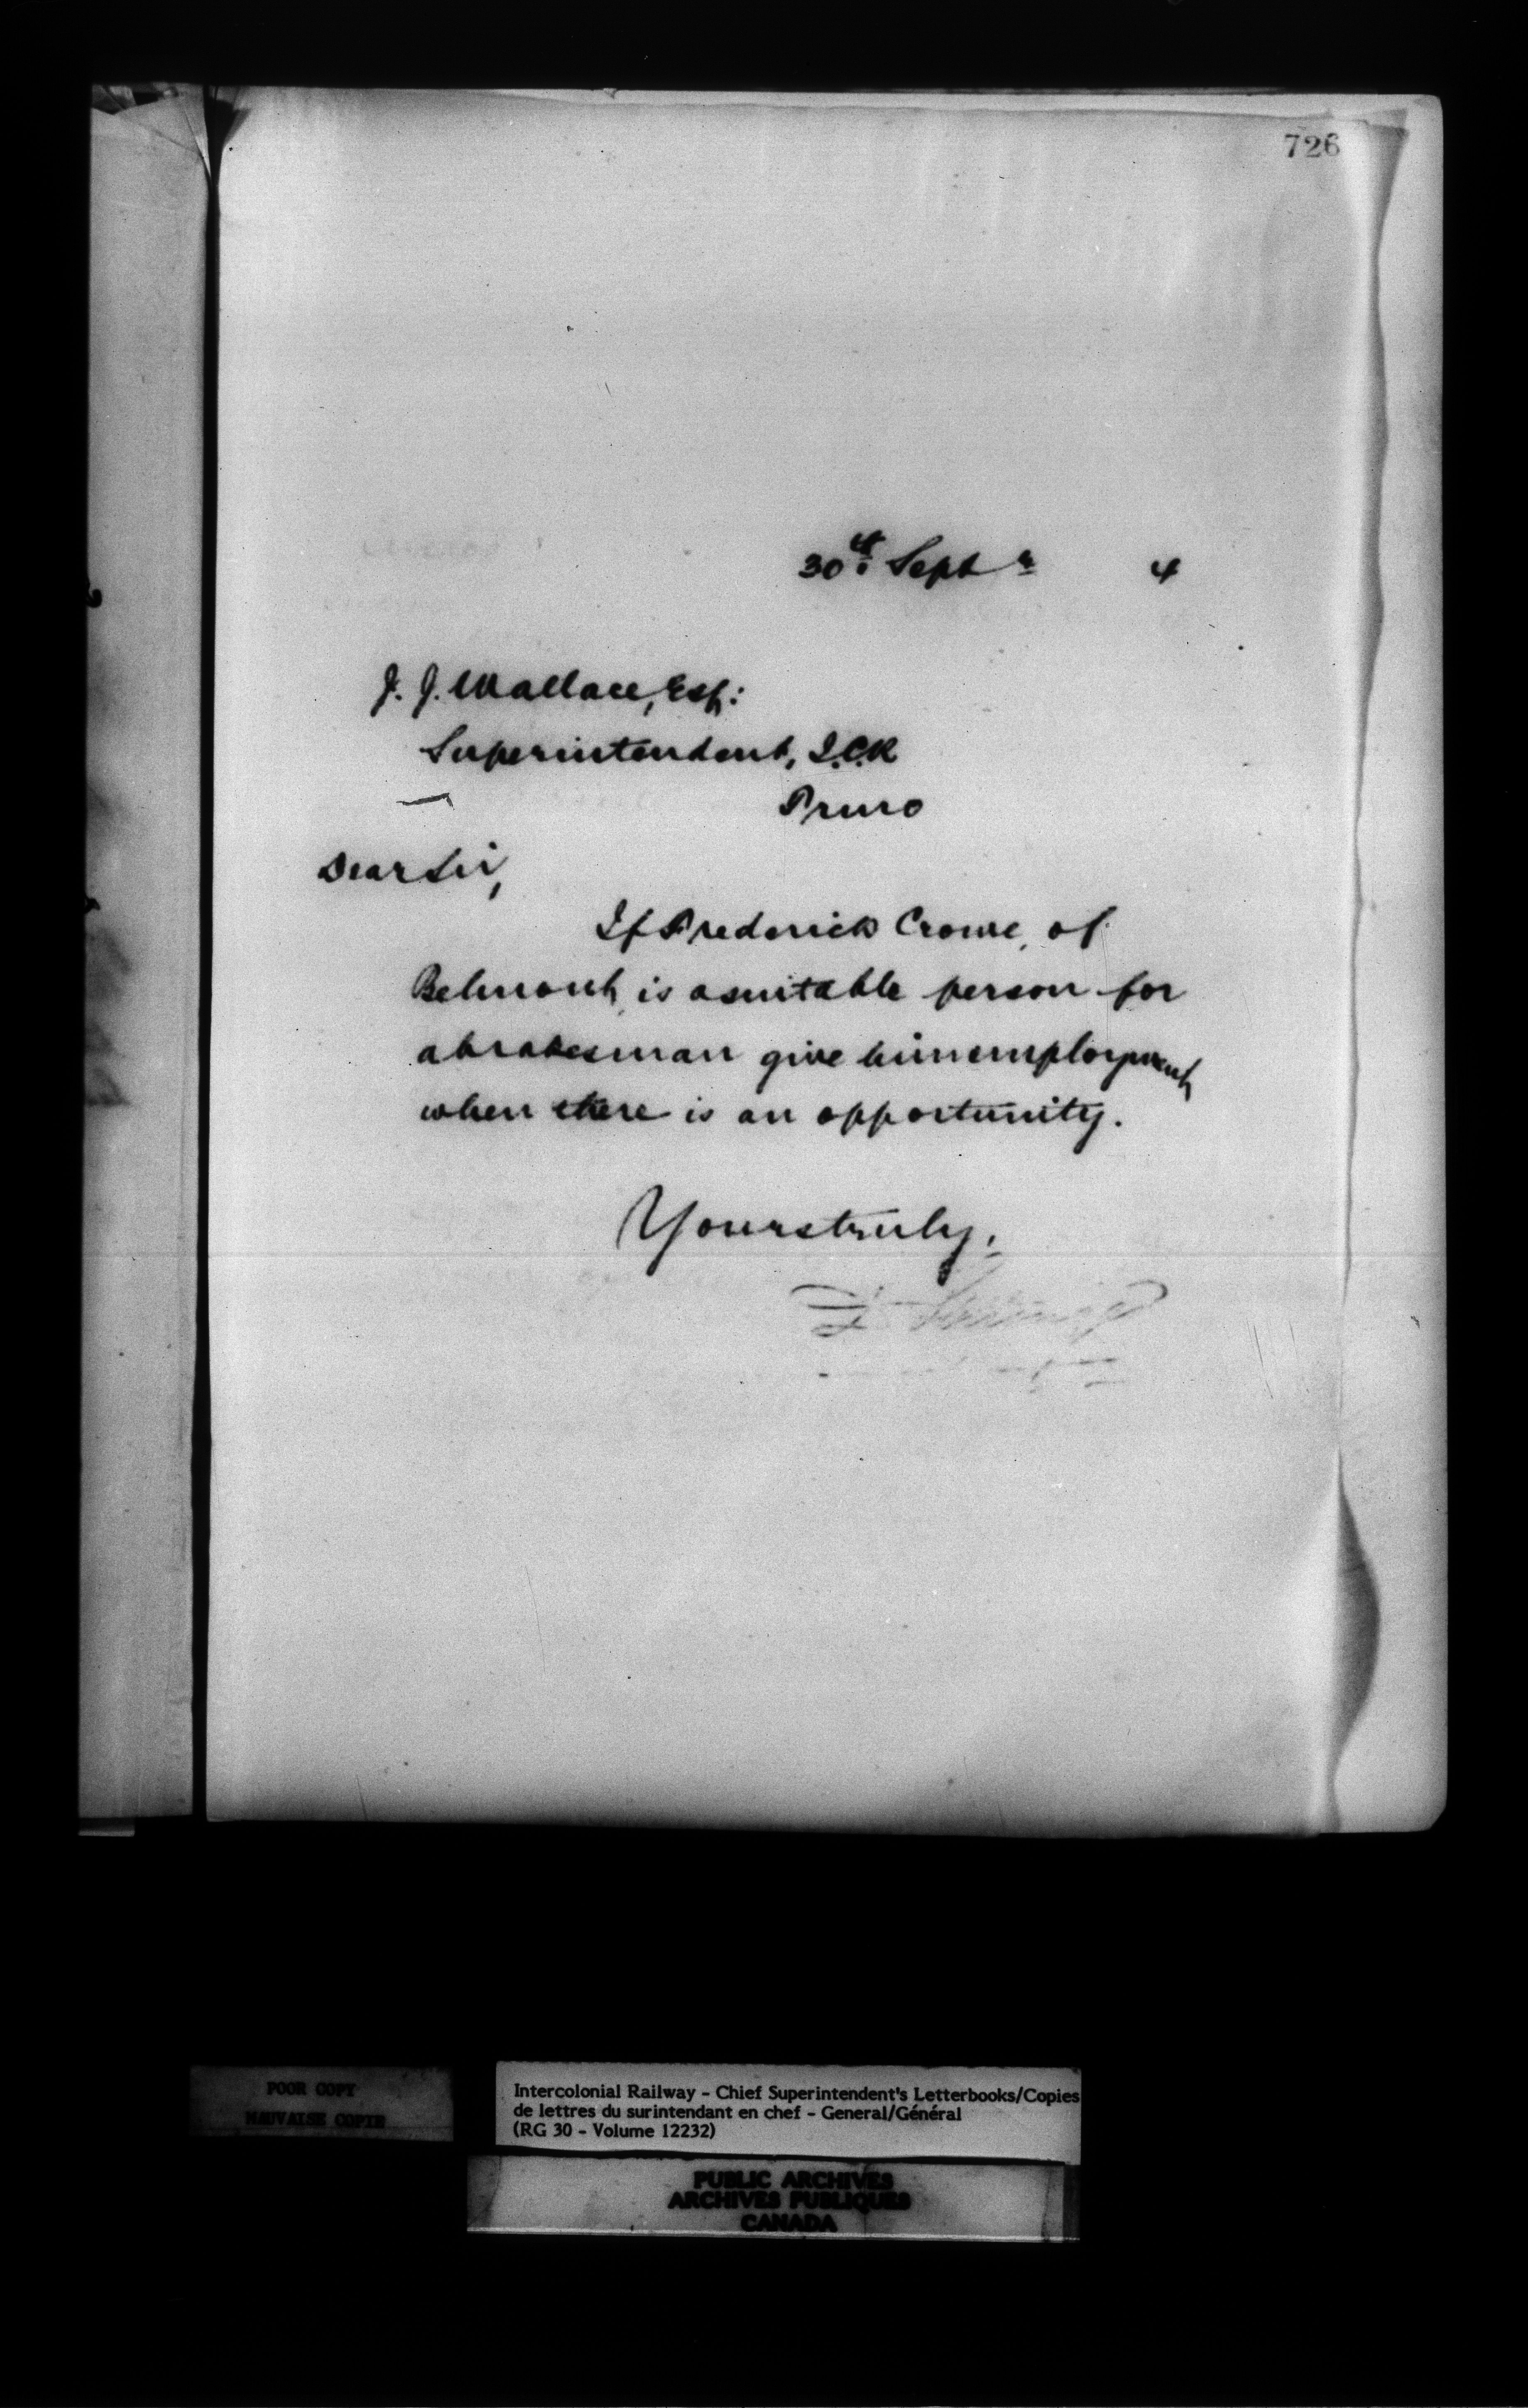 726
30th Septr 4
J. J. Wallace, Esq:
Superintendent, I.C.R
Truro
Dear Sir,
If Frederick Crowe, of
Belmont, is a suitable person for
a brakesman give him employment
when there is an opportunity.
Yours truly,
POOR COPY
MAUVAISE COPIE
Intercolonial Railway - Chief Superintendent's Letterbooks/Copies
de lettres du surintendant en chef - General/Général
(RG 30 - Volume 12232)
PUBLIC ARCHIVES
ARCHIVES PUBLIQUES
CANADA